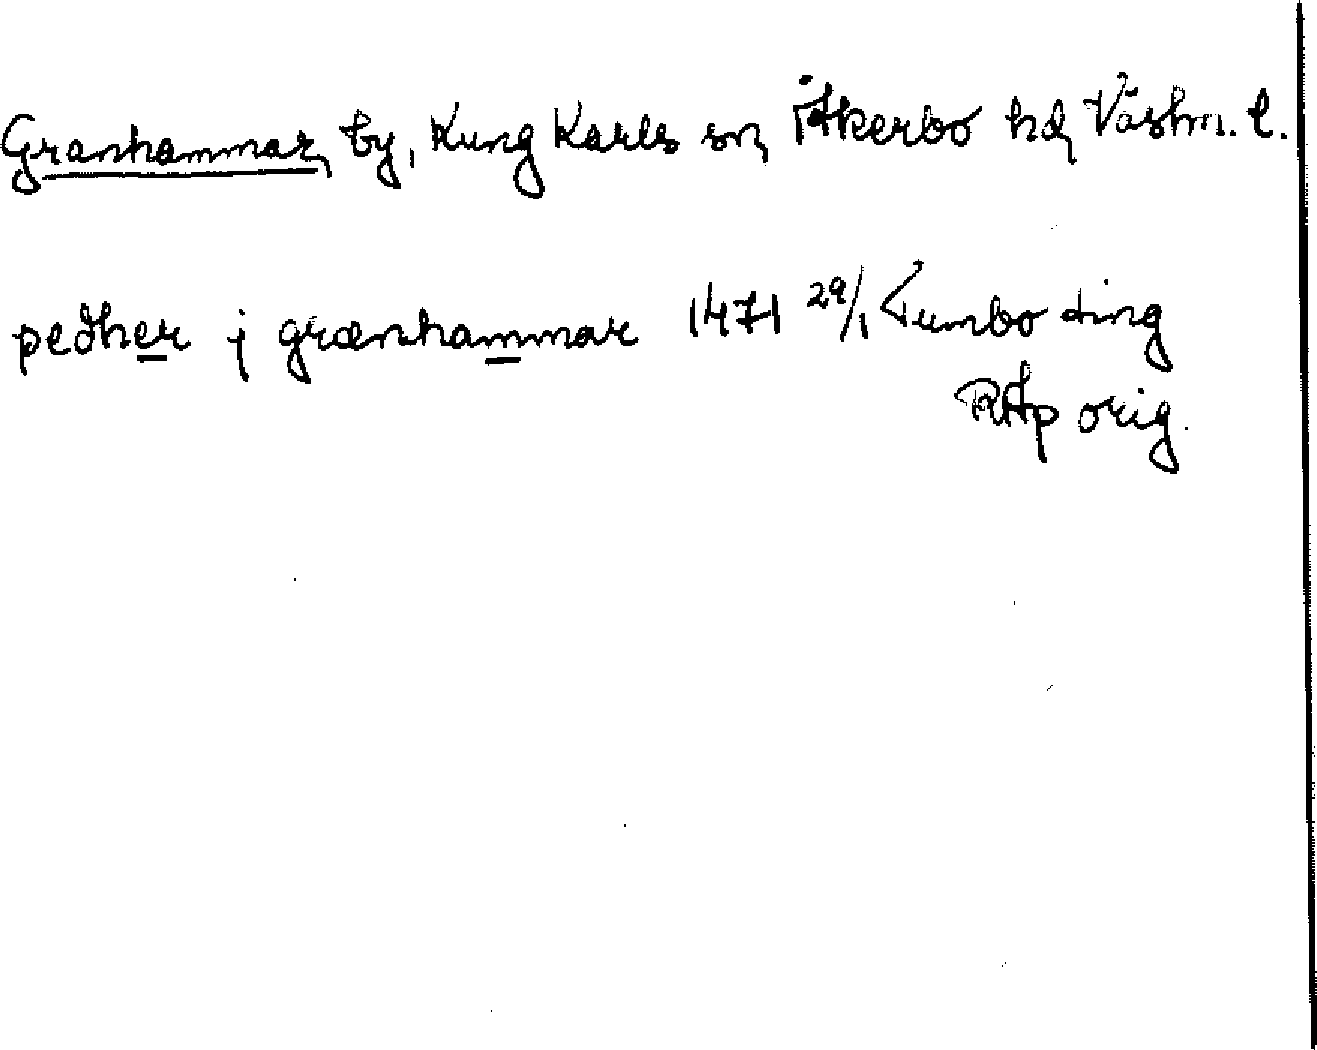 Granhammar, by, Kung Karls sn, Åkerbo hd, Västm. l.
pedher j grænhammar 1471 29/1 Tumbo ting
RAp orig.